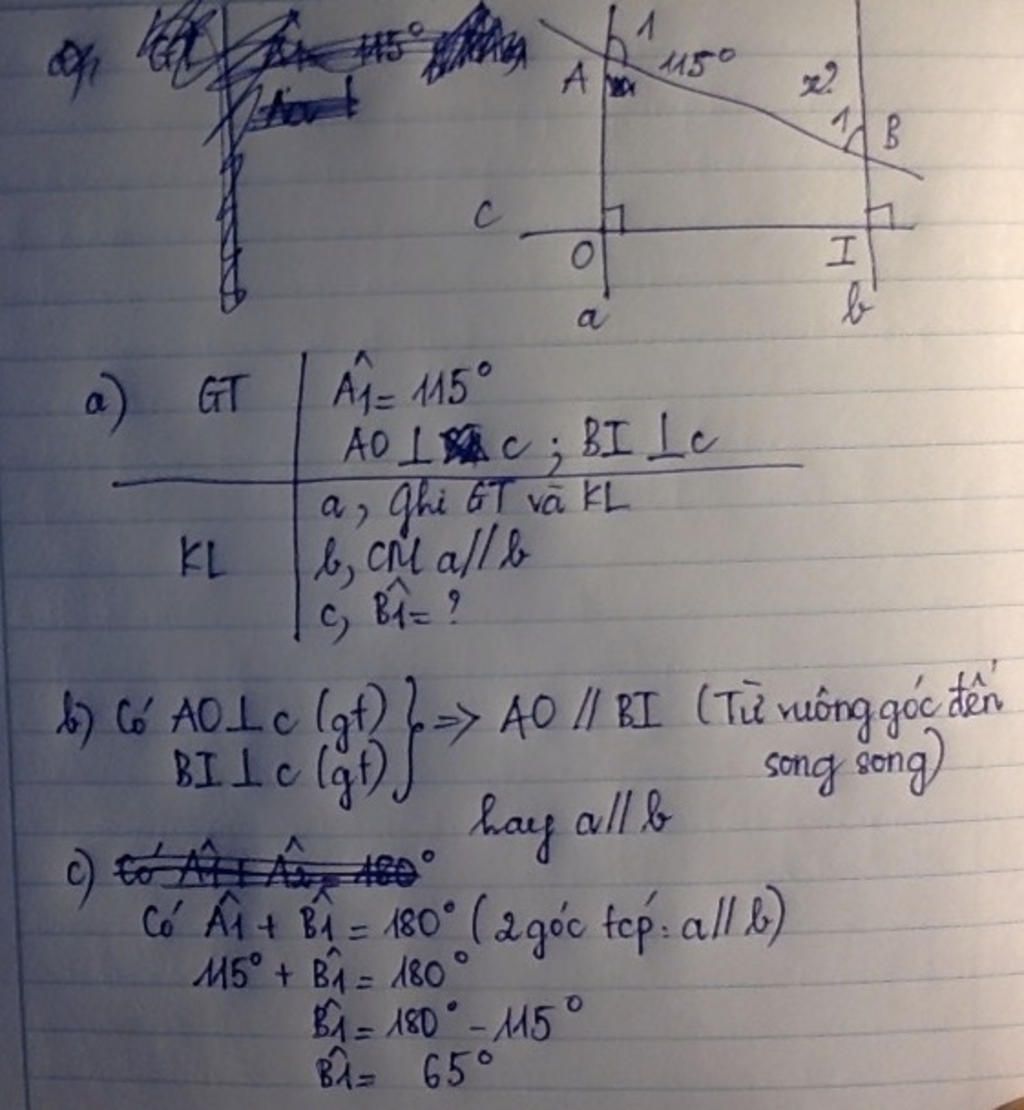 1
A 115° x?
1 B
C
O I
a b
a) GT Â1 = 115°
AO ⊥ c ; BI ⊥ c
a, Ghi GT và KL
KL b, CM a // b
c, B̂1 = ?
b) Có AO ⊥ c (gt) } => AO // BI (Từ vuông góc đến
BI ⊥ c (gt) song song)
hay a // b
c) Có Â1 + Â2 = 180°
Có Â1 + B̂1 = 180° (2 góc tcp: a // b)
115° + B̂1 = 180°
B̂1 = 180° - 115°
B̂1 = 65°